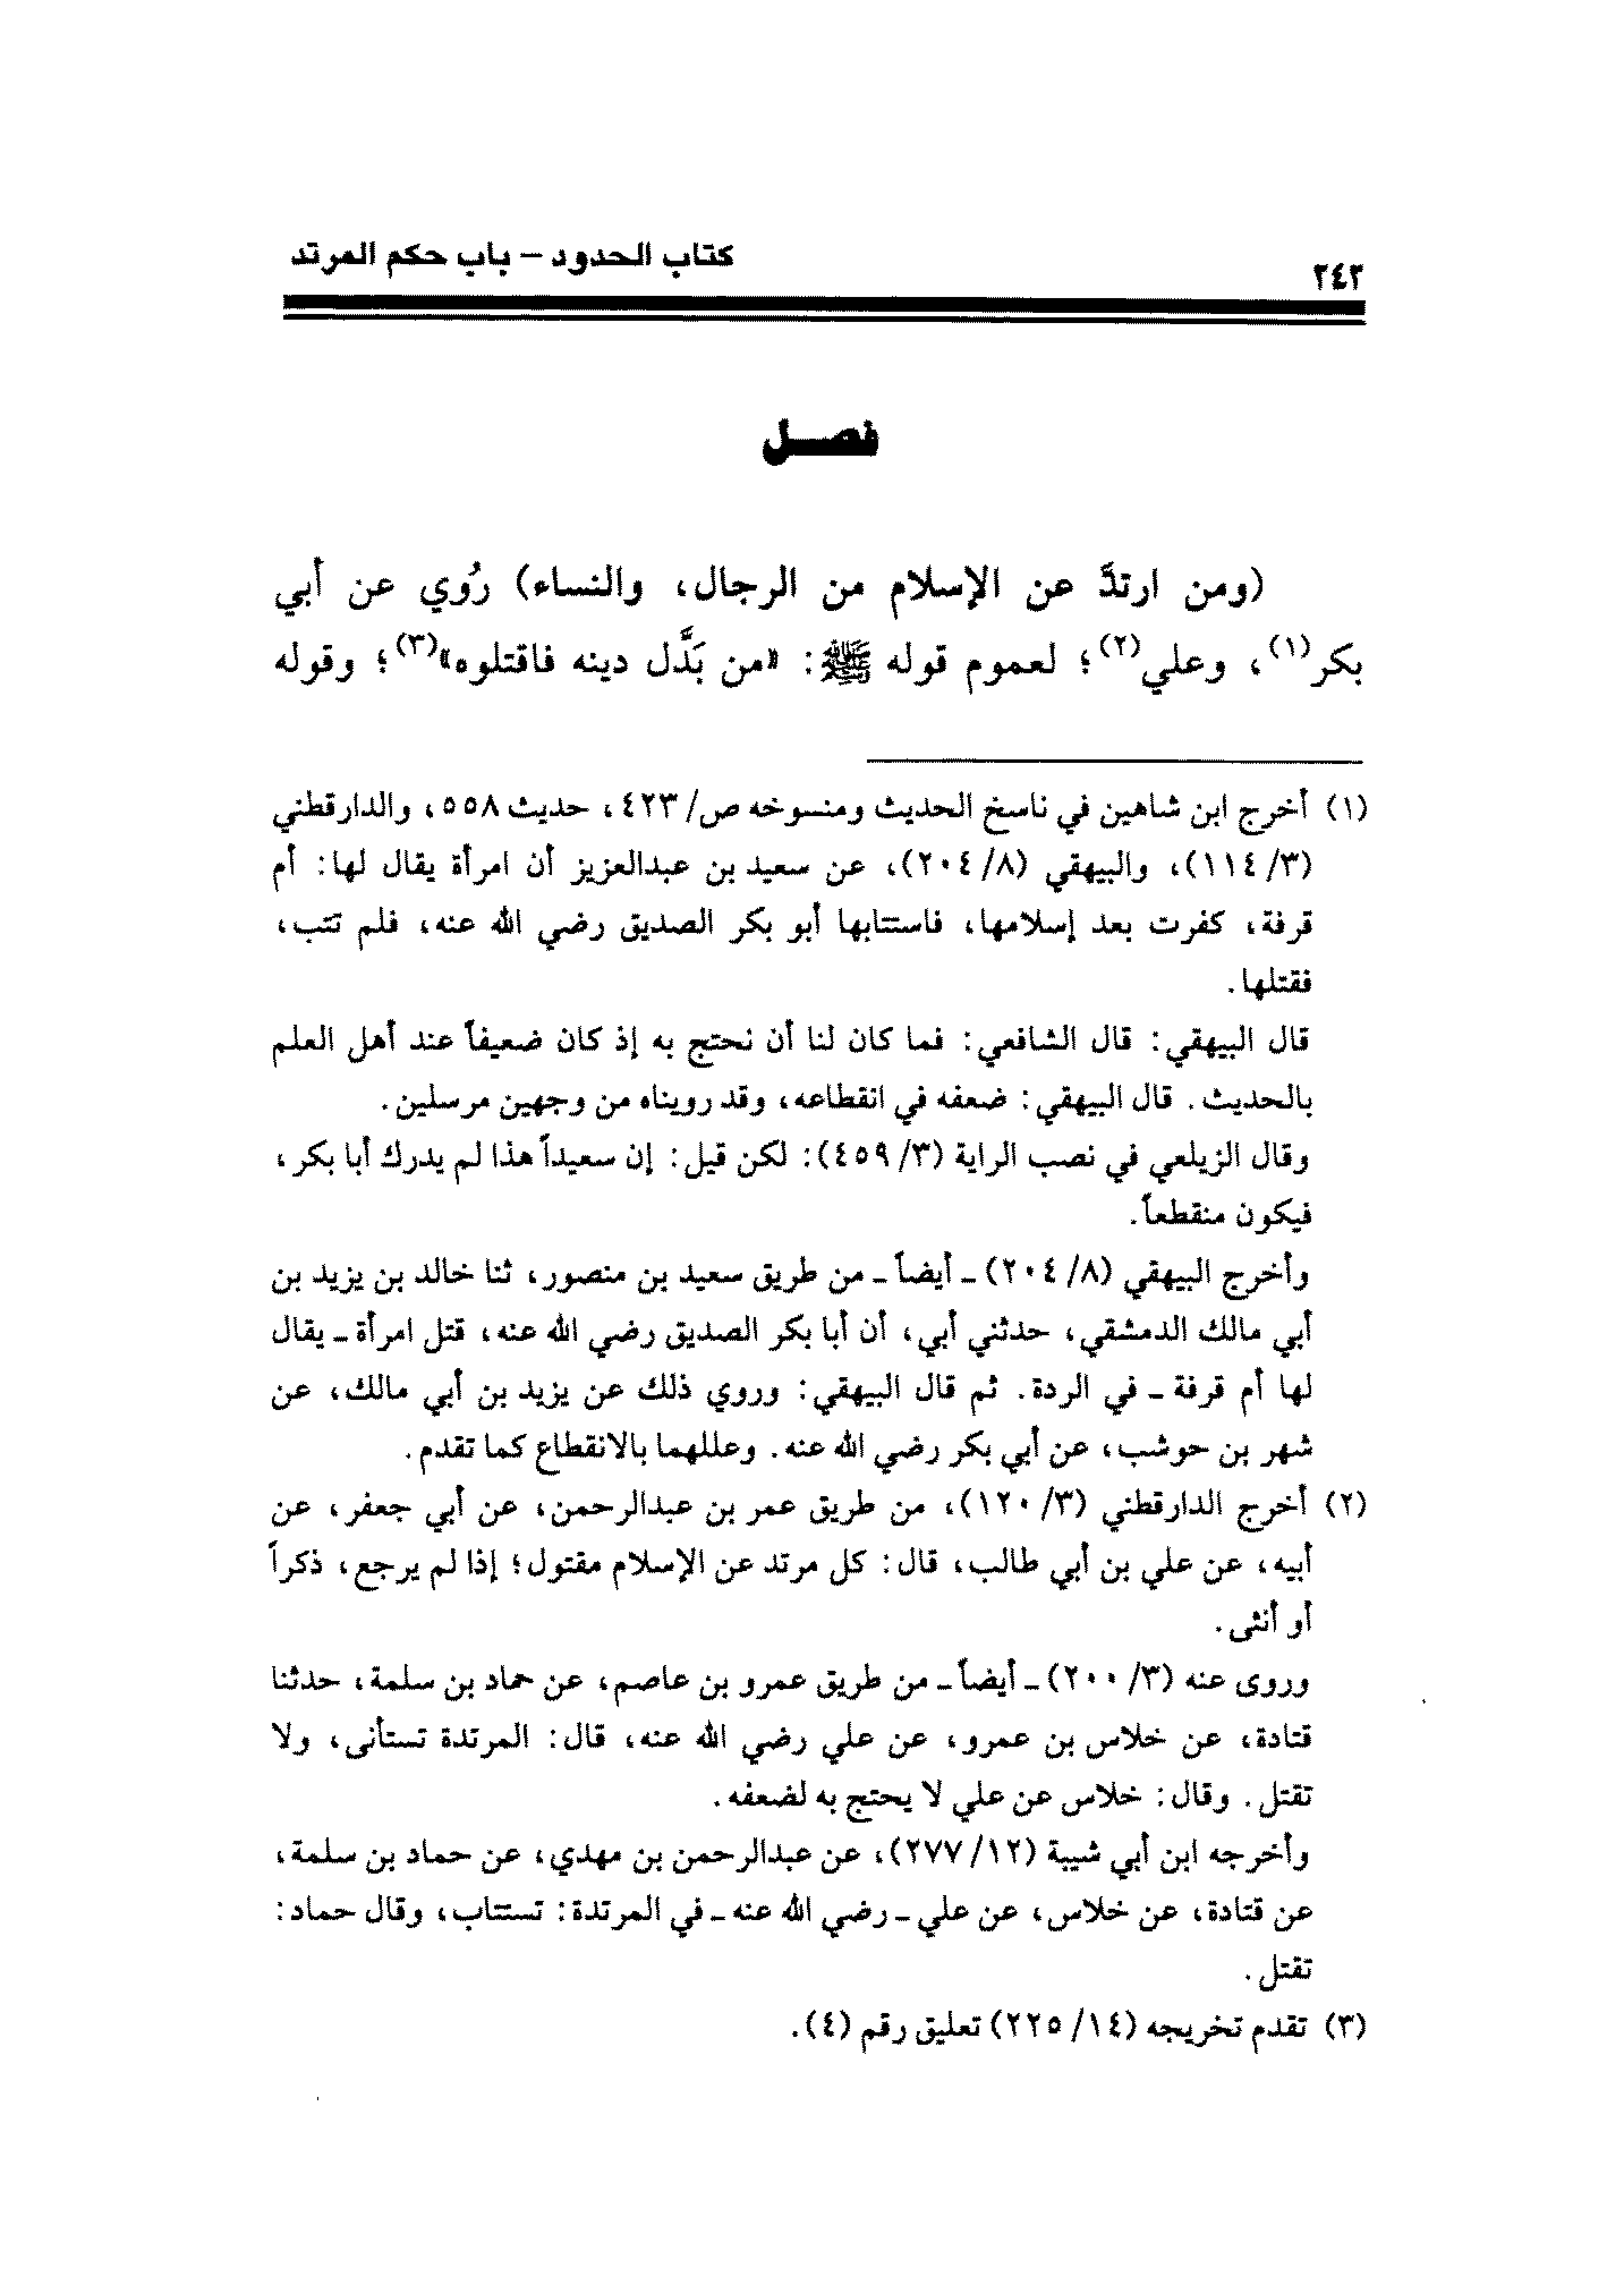 ٢٤٢
كتاب الحدود – باب حكم المرتد
فصـــل
(ومن ارتدَّ عن الإسلام من الرجال، والنساء) رُوي عن أبي
بكر(١)، وعلي(٢)؛ لعموم قوله ﷺ: «من بَدَّل دينه فاقتلوه»(٣)؛ وقوله
(١) أخرج ابن شاهين في ناسخ الحديث ومنسوخه ص/ ٤٢٣، حديث ٥٥٨، والدارقطني
(٣/ ١١٤)، والبيهقي (٨/ ٢٠٤)، عن سعيد بن عبدالعزيز أن امرأة يقال لها: أم
قرفة، كفرت بعد إسلامها، فاستتابها أبو بكر الصديق رضي الله عنه، فلم تتب،
فقتلها.
قال البيهقي: قال الشافعي: فما كان لنا أن نحتج به إذ كان ضعيفاً عند أهل العلم
بالحديث. قال البيهقي: ضعفه في انقطاعه، وقد رويناه من وجهين مرسلين.
وقال الزيلعي في نصب الراية (٣/ ٤٥٩): لكن قيل: إن سعيداً هذا لم يدرك أبا بكر،
فيكون منقطعاً.
وأخرج البيهقي (٨/ ٢٠٤) ـ أيضاً ـ من طريق سعيد بن منصور، ثنا خالد بن يزيد بن
أبي مالك الدمشقي، حدثني أبي، أن أبا بكر الصديق رضي الله عنه، قتل امرأة ـ يقال
لها أم قرفة ـ في الردة. ثم قال البيهقي: وروي ذلك عن يزيد بن أبي مالك، عن
شهر بن حوشب، عن أبي بكر رضي الله عنه. وعللهما بالانقطاع كما تقدم.
(٢) أخرج الدارقطني (٣/ ١٢٠)، من طريق عمر بن عبدالرحمن، عن أبي جعفر، عن
أبيه، عن علي بن أبي طالب، قال: كل مرتد عن الإسلام مقتول؛ إذا لم يرجع، ذكراً
أو أنثى.
وروى عنه (٣/ ٢٠٠) ـ أيضاً ـ من طريق عمرو بن عاصم، عن حماد بن سلمة، حدثنا
قتادة، عن خلاس بن عمرو، عن علي رضي الله عنه، قال: المرتدة تستأنى، ولا
تقتل. وقال: خلاس عن علي لا يحتج به لضعفه.
وأخرجه ابن أبي شيبة (١٢/ ٢٧٧)، عن عبدالرحمن بن مهدي، عن حماد بن سلمة،
عن قتادة، عن خلاس، عن علي ـ رضي الله عنه ـ في المرتدة: تستتاب، وقال حماد:
تقتل.
(٣) تقدم تخريجه (١٤/ ٢٢٥) تعليق رقم (٤).